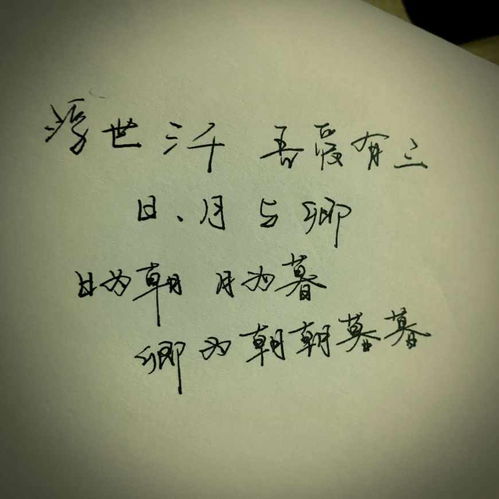 浮世三千 吾爱有三
日、月与卿
日为朝 月为暮
卿为朝朝暮暮